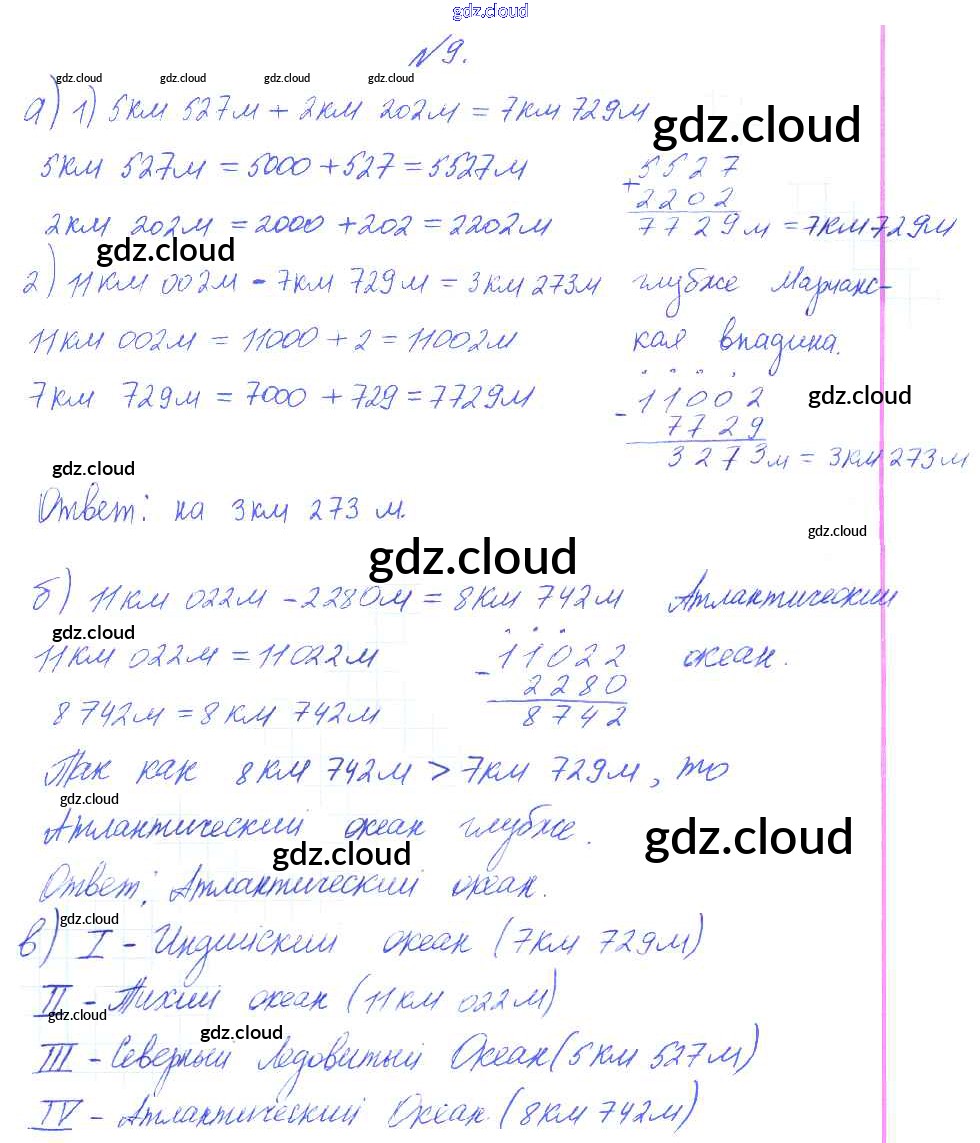 gdz.cloud
№9.
gdz.cloud gdz.cloud gdz.cloud gdz.cloud
а) 1) 5км 527м + 2км 202м = 7км 729м
gdz.cloud
5км 527м = 5000 + 527 = 5527м
+ 5527
2202
2км 202м = 2000 + 202 = 2202м
7729м = 7км 729м
gdz.cloud
2) 11км 002м - 7км 729м = 3км 273м глубже Марианс-
11км 002м = 11000 + 2 = 11002м кая впадина.
7км 729м = 7000 + 729 = 7729м
- 11002
gdz.cloud
7729
3273м = 3км 273м
gdz.cloud
Ответ: на 3км 273 м.
gdz.cloud
gdz.cloud
б) 11км 022м - 2280м = 8км 742м Атлантический
gdz.cloud
11км 022м = 11022м - 11022 океан.
2280
8742м = 8км 742м 8742
Так как 8км 742м > 7км 729м, то
gdz.cloud
Атлантический океан глубже.
gdz.cloud
gdz.cloud
Ответ: Атлантический океан.
gdz.cloud
в) I - Индийский океан (7км 729м)
II - Тихий океан (11км 022м)
gdz.cloud
gdz.cloud
III - Северный Ледовитый Океан (5км 527м)
IV - Атлантический Океан (8км 742м)